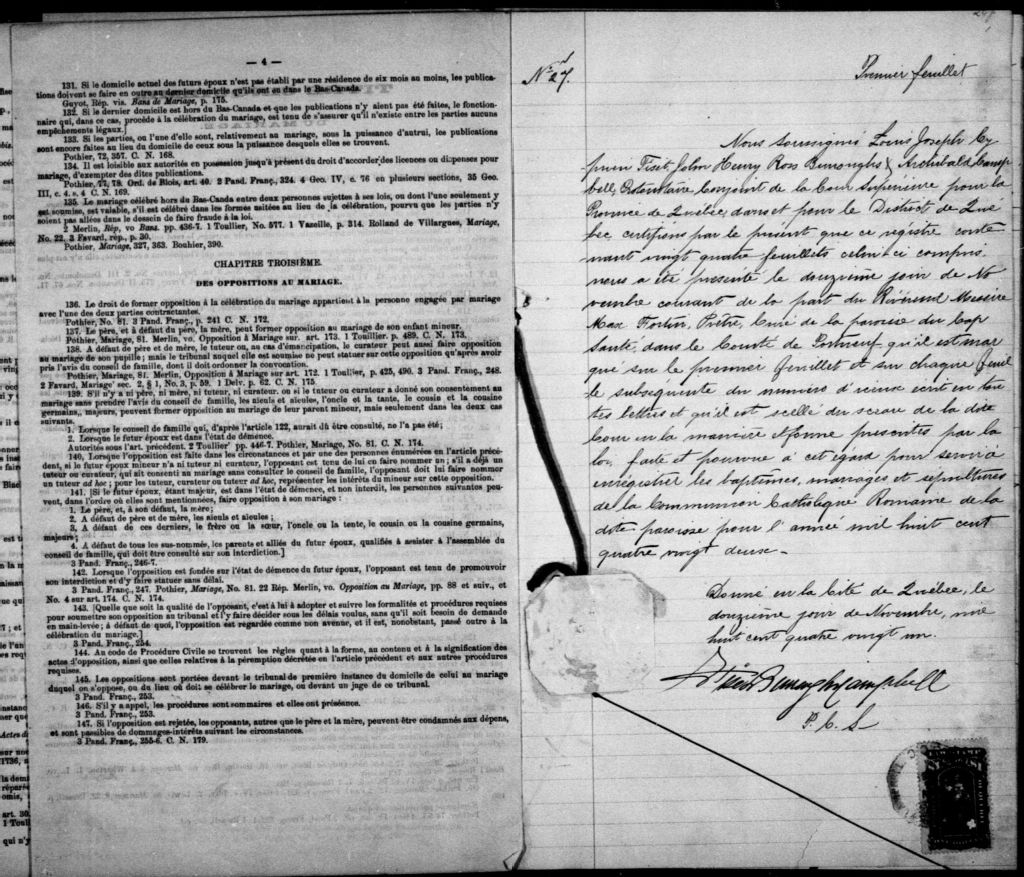 — 4 —
131. Si le domicile actuel des futurs époux n'est pas établi par une résidence de six mois au moins, les publica-
tions doivent se faire en outre au dernier domicile qu'ils ont eu dans le Bas-Canada.
Guyot, Rép. vis. Bans de Mariage, p. 175.
132. Si le dernier domicile est hors du Bas-Canada et que les publications n'y aient pas été faites, le fonction-
naire qui, dans ce cas, procède à la célébration du mariage, est tenu de s'assurer qu'il n'existe entre les parties aucuns
empêchements légaux.
133. Si les parties, ou l'une d'elles, sont, relativement au mariage, sous la puissance d'autrui, les publications
sont encore faites au lieu du domicile de ceux sous la puissance desquels elles se trouvent.
Pothier, 72, 357. C. N. 168.
134. Il est loisible aux autorités en possession jusqu'à présent du droit d'accorder des licences ou dispenses pour
mariage, d'exempter des dites publications.
Pothier, 77, 78. Ord. de Blois, art. 40. 2 Pand. Franç., 324. 4 Geo. IV, c. 76 en plusieurs sections, 35 Geo.
III, c. 4. s. 4 C. N. 169.
135. Le mariage célébré hors du Bas-Canda entre deux personnes sujettes à ses lois, ou dont l'une seulement y
est soumise, est valable, s'il est célébré dans les formes usitées au lieu de la célébration, pourvu que les parties n'y
soient pas allées dans le dessein de faire fraude à la loi.
2 Merlin, Rép, vo Bans. pp. 436-7. 1 Toullier, No. 577. 1 Vazeille, p. 314. Rolland de Villargues, Mariage,
No. 22. 3 Favard, rép., p. 30.
Pothier, Mariage, 327, 363. Bouhier, 390.
CHAPITRE TROISIÈME.
DES OPPOSITIONS AU MARIAGE.
136. Le droit de former opposition à la célébration du mariage appartient à la personne engagée par mariage
avec l'une des deux parties contractantes.
Pothier, No. 81. 3 Pand. Franç., p. 241 C. N. 172.
137. Le père, et à défaut du père, la mère, peut former opposition au mariage de son enfant mineur.
Pothier, Mariage, 81. Merlin, vo. Opposition à Mariage sur. art. 173. 1 Toullier. p. 489. C. N. 173.
138. A défaut de père et de mère, le tuteur ou, au cas d'émancipation, le curateur peut aussi faire opposition
au mariage de son pupille; mais le tribunal auquel elle est soumise ne peut statuer sur cette opposition qu'après avoir
pris l'avis du conseil de famille, dont il doit ordonner la convocation.
Pothier, Mariage, 81. Merlin, Opposition à Mariage sur art. 172. 1 Toullier, p. 425, 490. 3 Pand. Franç., 248.
2 Favard, Mariage' sec. 2, § 1, No. 3, p. 59. 1 Delv. p. 62. C. N. 175.
139. S'il n'y a ni père, ni mère, ni tuteur, ni curateur. ou si le tuteur ou curateur a donné son consentement au
mariage sans prendre l'avis du conseil de famille, les aïeuls et aïeules, l'oncle et la tante, le cousin et la cousine
germains, majeurs, peuvent former opposition au mariage de leur parent mineur, mais seulement dans les deux cas
suivants.
1. Lorsque le conseil de famille qui, d'après l'article 122, aurait dû être consulté, ne l'a pas été;
2. Lorsque le futur époux est dans l'état de démence.
Autorités sous l'art. précédent. 2 Toullier' pp. 446-7. Pothier, Mariage, No. 81. C. N. 174.
140. Lorsque l'opposition est faite dans les circonstances et par une des personnes énumérées en l'article précé-
dent, si le futur époux mineur n'a ni tuteur ni curateur, l'opposant est tenu de lui en faire nommer un; s'il a déjà un
tuteur ou curateur, qui ait consenti au mariage sans consulter le conseil de famille, l'opposant doit lui faire nommer
un tuteur ad hoc; pour les tuteur, curateur ou tuteur ad hoc, représenter les intérêts du mineur sur cette opposition.
141. [Si le futur époux, étant majeur, est dans l'état de démence, et non interdit, les personnes suivantes peu-
vent, dans l'ordre où elles sont mentionnées, faire opposition à son mariage:
1. Le père, et, à son défaut, la mère;
2. A défaut de père et de mère, les aïeuls et aïeules;
3, A défaut de ces derniers, le frère ou la sœur, l'oncle ou la tante, le cousin ou la cousine germains,
majeurs;
4. A défaut de tous les sus-nommés, les parents et alliés du futur époux, qualifiés à assister à l'assemblée du
conseil de famille, qui doit être consulté sur son interdiction.]
3 Pand. Franç., 246-7.
142. Lorsque l'opposition est fondée sur l'état de démence du futur époux, l'opposant est tenu de promouvoir
son interdiction et d'y faire statuer sans délai.
3 Pand. Franç., 247. Pothier, Mariage, No. 81. 22 Rép. Merlin, vo. Opposition au Mariage, pp. 88 et suiv., et
No. 4 sur art. 174. C. N. 174.
143. [Quelle que soit la qualité de l'opposant, c'est à lui à adopter et suivre les formalités et procédures requises
pour soumettre son opposition au tribunal et l'y faire décider sous les délais voulus, sans qu'il soit besoin de demande
en main-levée; à défaut de quoi, l'opposition est regardée comme non avenue, et il est, nonobstant, passé outre à la
célébration du mariage.]
3 Pand. Franç., 254.
144. Au code de Procédure Civile se trouvent les règles quant à la forme, au contenu et à la signification des
actes d'opposition, ainsi que celles relatives à la péremption décrétée en l'article précédent et aux autres procédures
requises.
145. Les oppositions sont portées devant le tribunal de première instance du domicile de celui au mariage
duquel on s'oppose, ou du lieu où doit se célébrer le mariage, ou devant un juge de ce tribunal.
3 Pand. Franç., 253.
146. S'il y a appel, les procédures sont sommaires et elles ont préséance.
3 Pand. Franç., 253.
147. Si l'opposition est rejetée, les opposants, autres que le père et la mère, peuvent être condamnés aux dépens,
et sont passibles de dommages-intérêts suivant les circonstances.
3 Pand. Franç., 255-6. C. N. 179.
No 27.
Premier feuillet
Nous soussignés Louis Joseph Cy-
prien Fiset, John Henry Ross Burroughs & Archibald Camp-
bell, Protonotaire Conjoint de la Cour Supérieure pour la
Province de Québec, dans et pour le District de Qué-
bec certifions par le présent que ce registre conte-
nant vingt quatre feuillets celui-ci compris
nous a été présenté le douzième jour de No-
vembre courant de la part du Révérend Messire
Max Fortin, Prêtre, Curé de la paroisse du Cap
Santé, dans le Comté de Portneuf qu'il est mar-
qué sur le premier feuillet et sur chaque feuil-
let subséquents du numéro d'iceux écrit en tou-
tes lettres et qu'il est scellé du sceau de la dite
Cour en la manière & forme prescrites par la
loi, faite et pourvue à cet égard pour servir à
enregistrer les baptêmes, mariages et sépultures
de la Communion Catholique Romaine de la
dite paroisse pour l'année mil huit cent
quatre vingt deux.-
Donné en la Cité de Québec, le
douzième jour de Novembre, mil
huit cent quatre vingt un.
Fiset Burroughs Campbell
P. C. S.